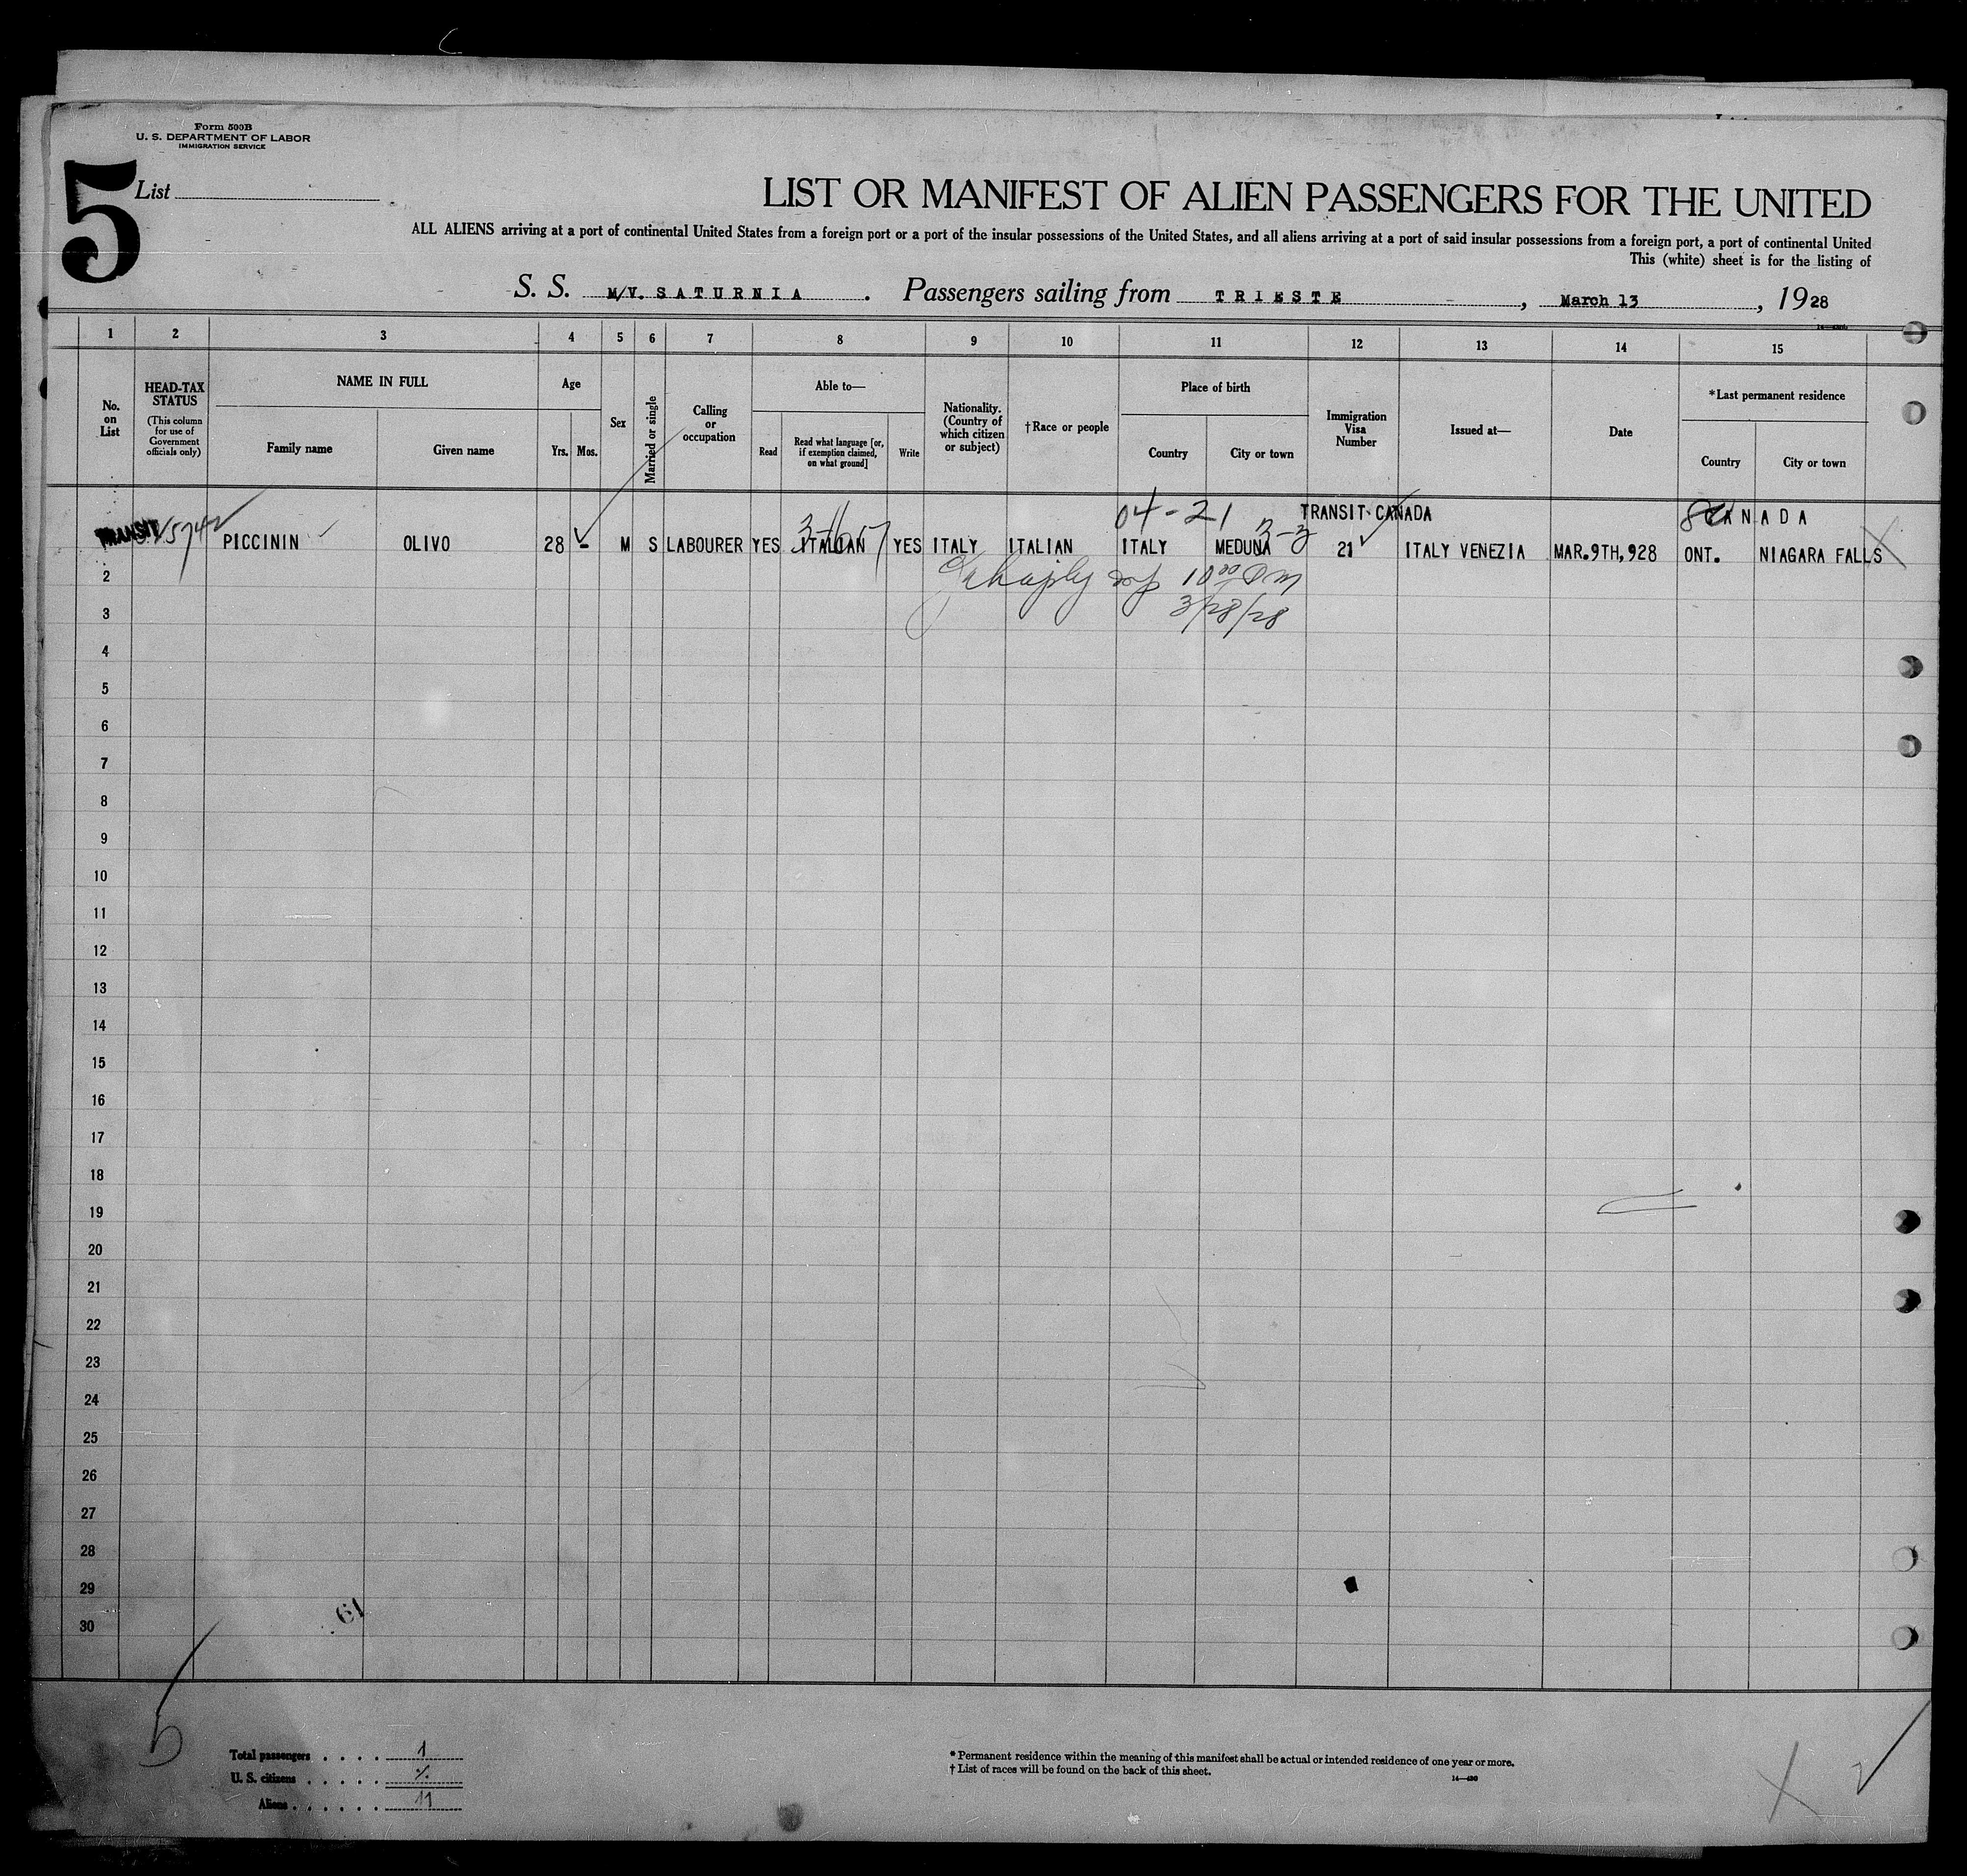 Form 500B
U. S. DEPARTMENT OF LABOR
IMMIGRATION SERVICE
5
List
LIST OR MANIFEST OF ALIEN PASSENGERS FOR THE UNITED
ALL ALIENS arriving at a port of continental United States from a foreign port or a port of the insular possessions of the United States, and all aliens arriving at a port of said insular possessions from a foreign port, a port of continental United
This (white) sheet is for the listing of
S. S. M/V. SATURNIA . Passengers sailing from TRIESTE , March 13 , 1928
1 2 3 4 5 6 7 8 9 10 11 12 13 14 15
No. on List
HEAD-TAX STATUS
(This column for use of Government officials only)
NAME IN FULL
Family name
Given name
Age
Yrs.
Mos.
Sex
Married or single
Calling or occupation
Able to—
Read
Read what language [or, if exemption claimed, on what ground]
Write
Nationality. (Country of which citizen or subject)
†Race or people
Place of birth
Country
City or town
Immigration Visa Number
Issued at—
Date
*Last permanent residence
Country
City or town
04-21 TRANSIT CANADA CANADA
TRANSIT PICCININ OLIVO 28 - M S LABOURER YES ITALIAN YES ITALY ITALIAN ITALY MEDUNA 3-3 21 ITALY VENEZIA MAR.9TH,928 ONT. NIAGARA FALLS
2
3/28/28
3
4
5
6
7
8
9
10
11
12
13
14
15
16
17
18
19
20
21
22
23
24
25
26
27
28
29
30
61
5
Total passengers . . . . 1
U. S. citizens . . . . .
Aliens . . . . . . 11
* Permanent residence within the meaning of this manifest shall be actual or intended residence of one year or more.
† List of races will be found on the back of this sheet.